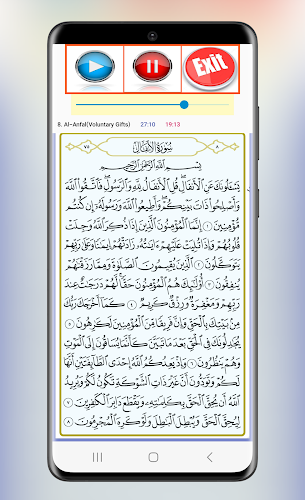 Exit
8. Al-Anfal(Voluntary Gifts) 27:10 19:13
٨ سُورَةُ الأَنفَالِ ٧٥
بِسْمِ ٱللَّهِ ٱلرَّحْمَٰنِ ٱلرَّحِيمِ
يَسْـَٔلُونَكَ عَنِ ٱلْأَنفَالِ قُلِ ٱلْأَنفَالُ لِلَّهِ وَٱلرَّسُولِ فَٱتَّقُوا۟ ٱللَّهَ
وَأَصْلِحُوا۟ ذَاتَ بَيْنِكُمْ وَأَطِيعُوا۟ ٱللَّهَ وَرَسُولَهُۥٓ إِن كُنتُم
مُّؤْمِنِينَ ١ إِنَّمَا ٱلْمُؤْمِنُونَ ٱلَّذِينَ إِذَا ذُكِرَ ٱللَّهُ وَجِلَتْ
قُلُوبُهُمْ وَإِذَا تُلِيَتْ عَلَيْهِمْ ءَايَٰتُهُۥ زَادَتْهُمْ إِيمَٰنًا وَعَلَىٰ رَبِّهِمْ
يَتَوَكَّلُونَ ٢ ٱلَّذِينَ يُقِيمُونَ ٱلصَّلَوٰةَ وَمِمَّا رَزَقْنَٰهُمْ
يُنفِقُونَ ٣ أُو۟لَٰٓئِكَ هُمُ ٱلْمُؤْمِنُونَ حَقًّا لَّهُمْ دَرَجَٰتٌ عِندَ
رَبِّهِمْ وَمَغْفِرَةٌ وَرِزْقٌ كَرِيمٌ ٤ كَمَآ أَخْرَجَكَ رَبُّكَ
مِنۢ بَيْتِكَ بِٱلْحَقِّ وَإِنَّ فَرِيقًا مِّنَ ٱلْمُؤْمِنِينَ لَكَٰرِهُونَ ٥
يُجَٰدِلُونَكَ فِى ٱلْحَقِّ بَعْدَ مَا تَبَيَّنَ كَأَنَّمَا يُسَاقُونَ إِلَى ٱلْمَوْتِ
وَهُمْ يَنظُرُونَ ٦ وَإِذْ يَعِدُكُمُ ٱللَّهُ إِحْدَى ٱلطَّآئِفَتَيْنِ أَنَّهَا
لَكُمْ وَتَوَدُّونَ أَنَّ غَيْرَ ذَاتِ ٱلشَّوْكَةِ تَكُونُ لَكُمْ وَيُرِيدُ
ٱللَّهُ أَن يُحِقَّ ٱلْحَقَّ بِكَلِمَٰتِهِۦ وَيَقْطَعَ دَابِرَ ٱلْكَٰفِرِينَ ٧
لِيُحِقَّ ٱلْحَقَّ وَيُبْطِلَ ٱلْبَٰطِلَ وَلَوْ كَرِهَ ٱلْمُجْرِمُونَ ٨